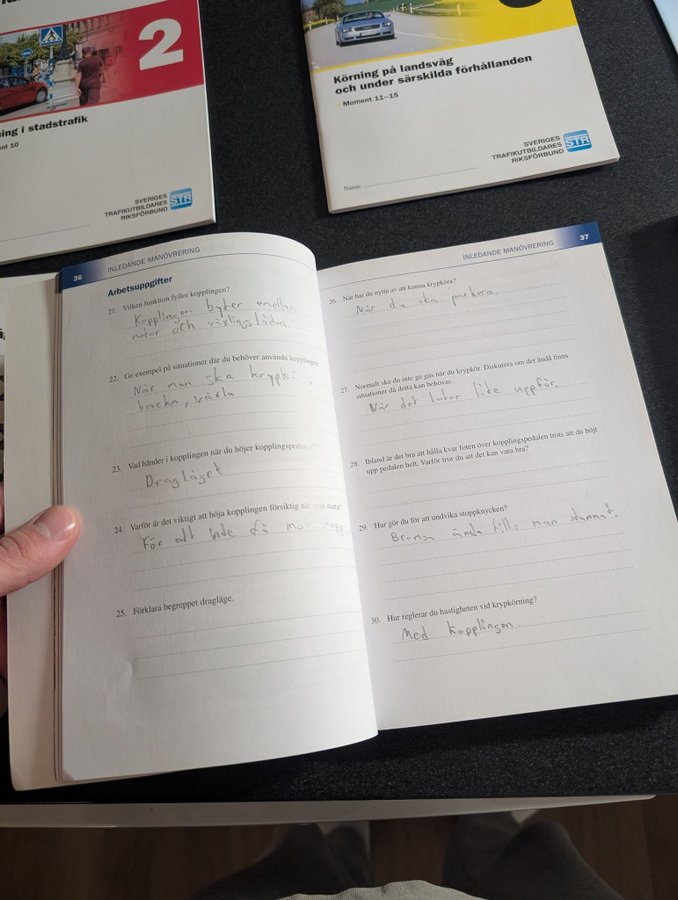 2
ing i stadstrafik
nt 10
SVERIGES
TRAFIKUTBILDARES
RIKSFÖRBUND
STR
Körning på landsväg
och under särskilda förhållanden
Moment 11–15
Namn:
SVERIGES
TRAFIKUTBILDARES
RIKSFÖRBUND
STR
36 INLEDANDE MANÖVRERING
Arbetsuppgifter
21. Vilken funktion fyller kopplingen?
Kopplingen byter emellan
motor och växligslådan
22. Ge exempel på situationer där du behöver använda kopplingen.
När man ska krypkö,
backa, växla
23. Vad händer i kopplingen när du höjer kopplingspedalen?
Dragläget
24. Varför är det viktigt att höja kopplingen försiktig när man startar?
För att inte få
25. Förklara begreppet dragläge.
INLEDANDE MANÖVRERING 37
26. När har du nytta av att kunna krypköra?
När du ska parkera.
27. Normalt ska du inte ge gas när du krypkör. Diskutera om det ändå finns
situationer då detta kan behövas.
När det lutar lite uppför.
28. Ibland är det bra att hålla kvar foten över kopplingspedalen trots att du höjt
upp pedalen helt. Varför tror du att det kan vara bra?
29. Hur gör du för att undvika stoppknycken?
Bromsa ända tills man stannat.
30. Hur reglerar du hastigheten vid krypkörning?
Med kopplingen.